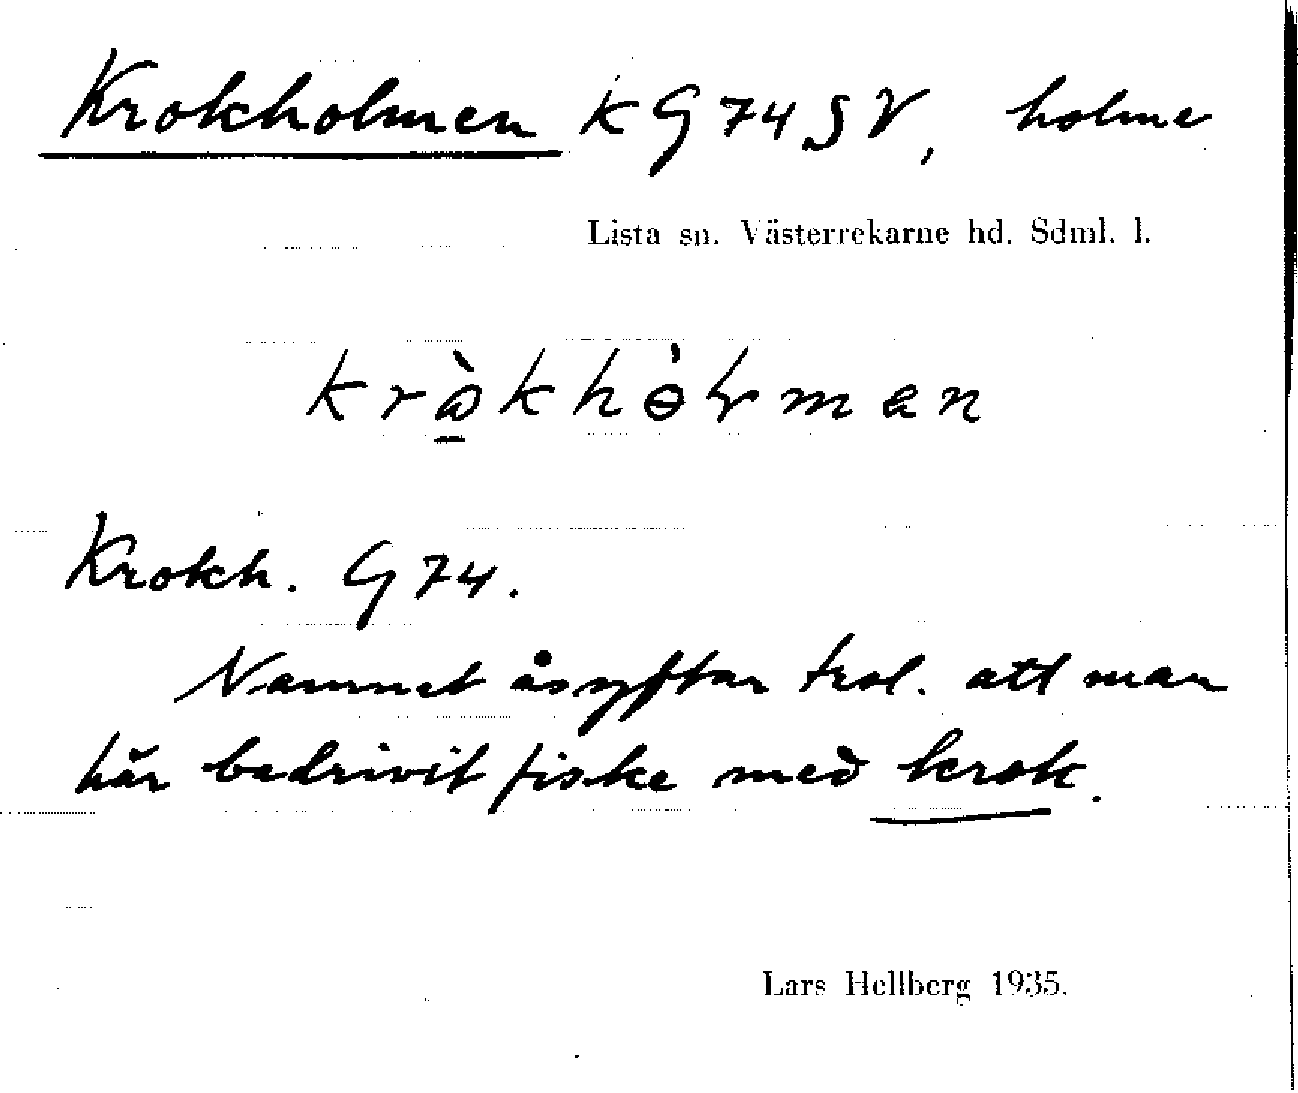 Krokholmen KG74SV, holme
Lista sn. Västerrekarne hd. Sdml. l.
Krokh. G74.
Namnet åsyftar trol. att man
här bedrivit fiske med krok.
Lars Hellberg 1935.